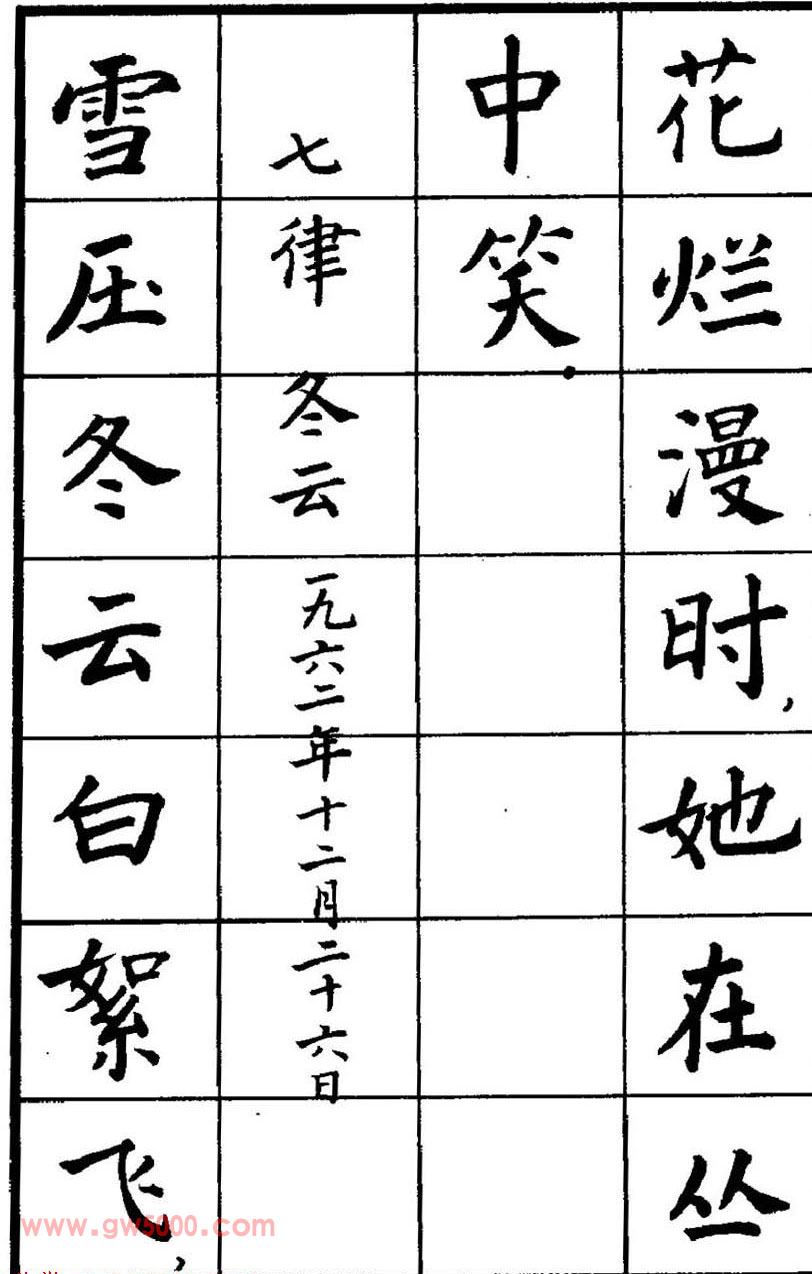 花烂漫时，她在丛
中笑．
七律 冬云 一九六二年十二月二十六日
雪压冬云白絮飞，
www.gw5000.com